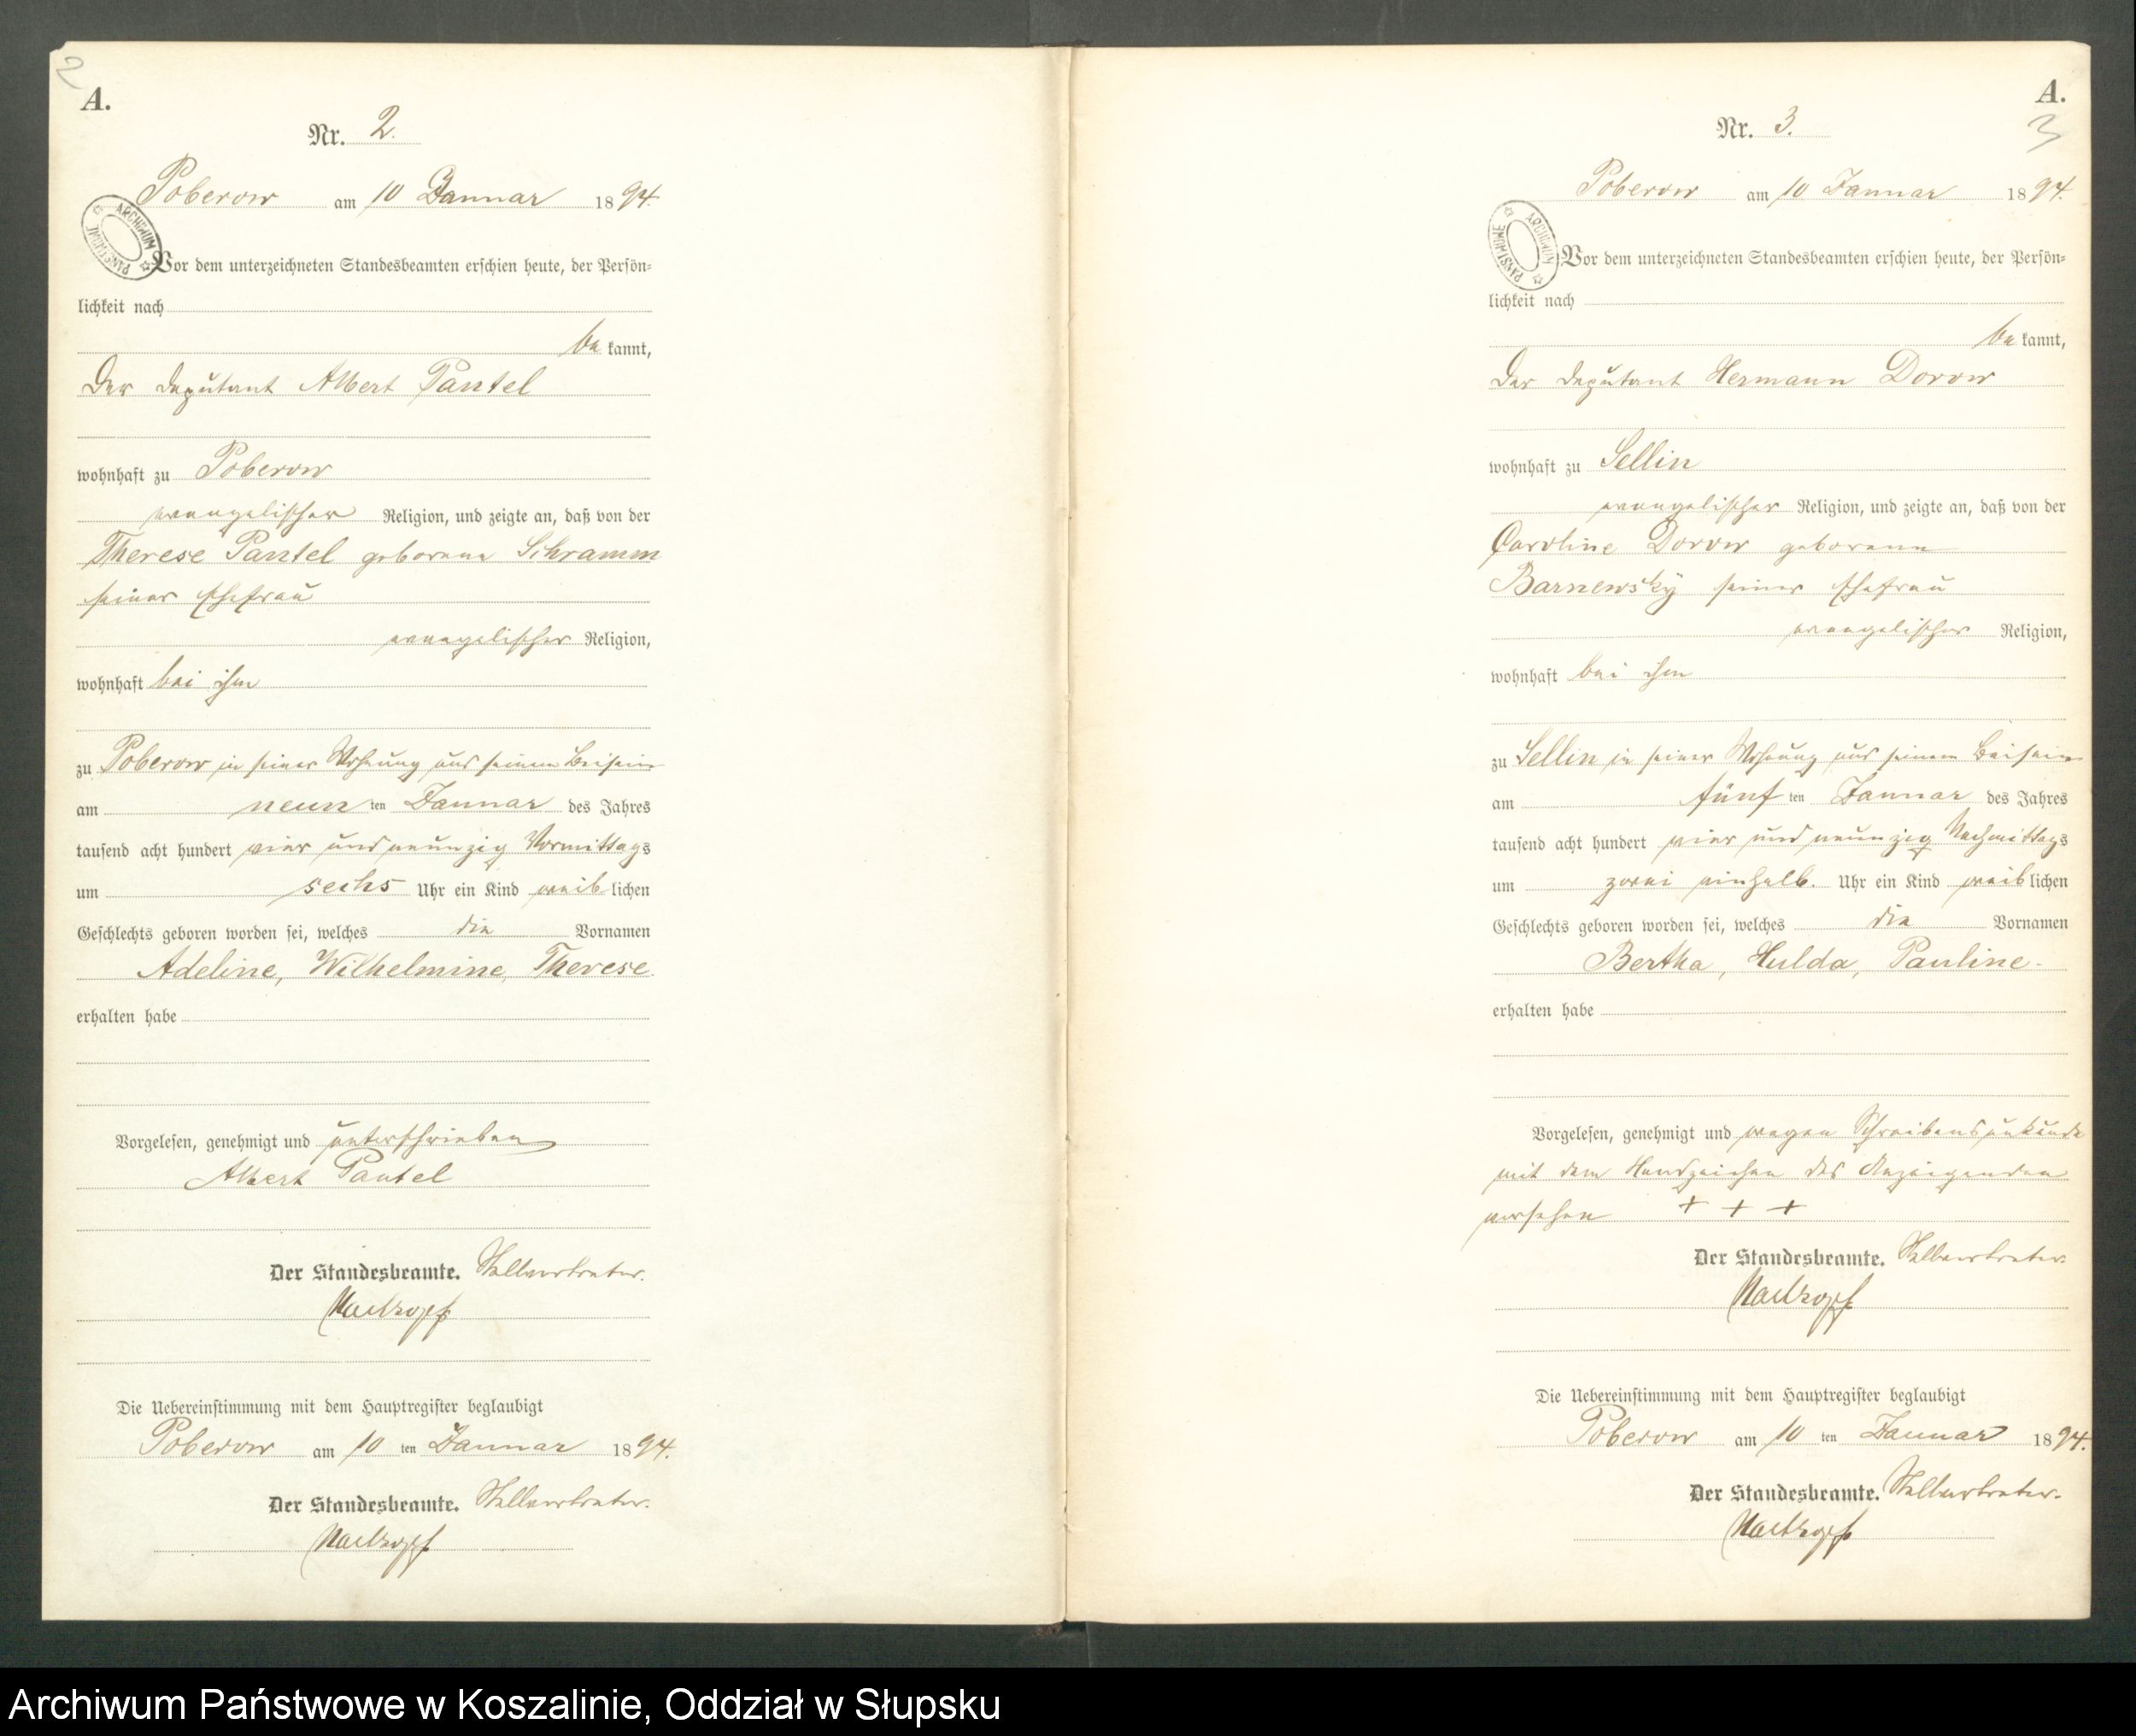 2
A.
Nr. 2.
Poberow am 10 Januar 1894.
ARCHIWUM PAŃSTWOWE
Vor dem unterzeichneten Standesbeamten erschien heute, der Persön=
lichkeit nach
be kannt,
Der Deputant Albert Pantel
wohnhaft zu Poberow
evangelischer Religion, und zeigte an, daß von der
Therese Pantel geborene Schramm
seiner Ehefrau
evangelischer Religion,
wohnhaft bei ihm
zu Poberow in seiner Wohnung und seinem Beisein
am neun ten Januar des Jahres
tausend acht hundert vier und neunzig Vormittags
um sechs Uhr ein Kind weib lichen
Geschlechts geboren worden sei, welches die Vornamen
Adeline, Wilhelmine, Therese
erhalten habe
Vorgelesen, genehmigt und unterschrieben
Albert Pantel
Der Standesbeamte. Stellvertreter.
Die Uebereinstimmung mit dem Hauptregister beglaubigt
Poberow am 10 ten Januar 1894.
Der Standesbeamte. Stellvertreter.
A.
3
Nr. 3.
Poberow am 10 Januar 1894.
ARCHIWUM PAŃSTWOWE
Vor dem unterzeichneten Standesbeamten erschien heute, der Persön=
lichkeit nach
be kannt,
Der Deputant Hermann Dorow
wohnhaft zu Sellin
evangelischer Religion, und zeigte an, daß von der
Caroline Dorow geborenen
Barnewsky seiner Ehefrau
evangelischer Religion,
wohnhaft bei ihm
zu Sellin in seiner Wohnung und seinem Beisein
am fünf ten Januar des Jahres
tausend acht hundert vier und neunzig Nachmittags
um zwei einhalb. Uhr ein Kind weib lichen
Geschlechts geboren worden sei, welches die Vornamen
Bertha, Hulda, Pauline.
erhalten habe
Vorgelesen, genehmigt und wegen Schreibensunkunde
mit dem Handzeichen des Anzeigenden
versehen + + +
Der Standesbeamte. Stellvertreter.
Die Uebereinstimmung mit dem Hauptregister beglaubigt
Poberow am 10 ten Januar 1894.
Der Standesbeamte. Stellvertreter.
Archiwum Państwowe w Koszalinie, Oddział w Słupsku